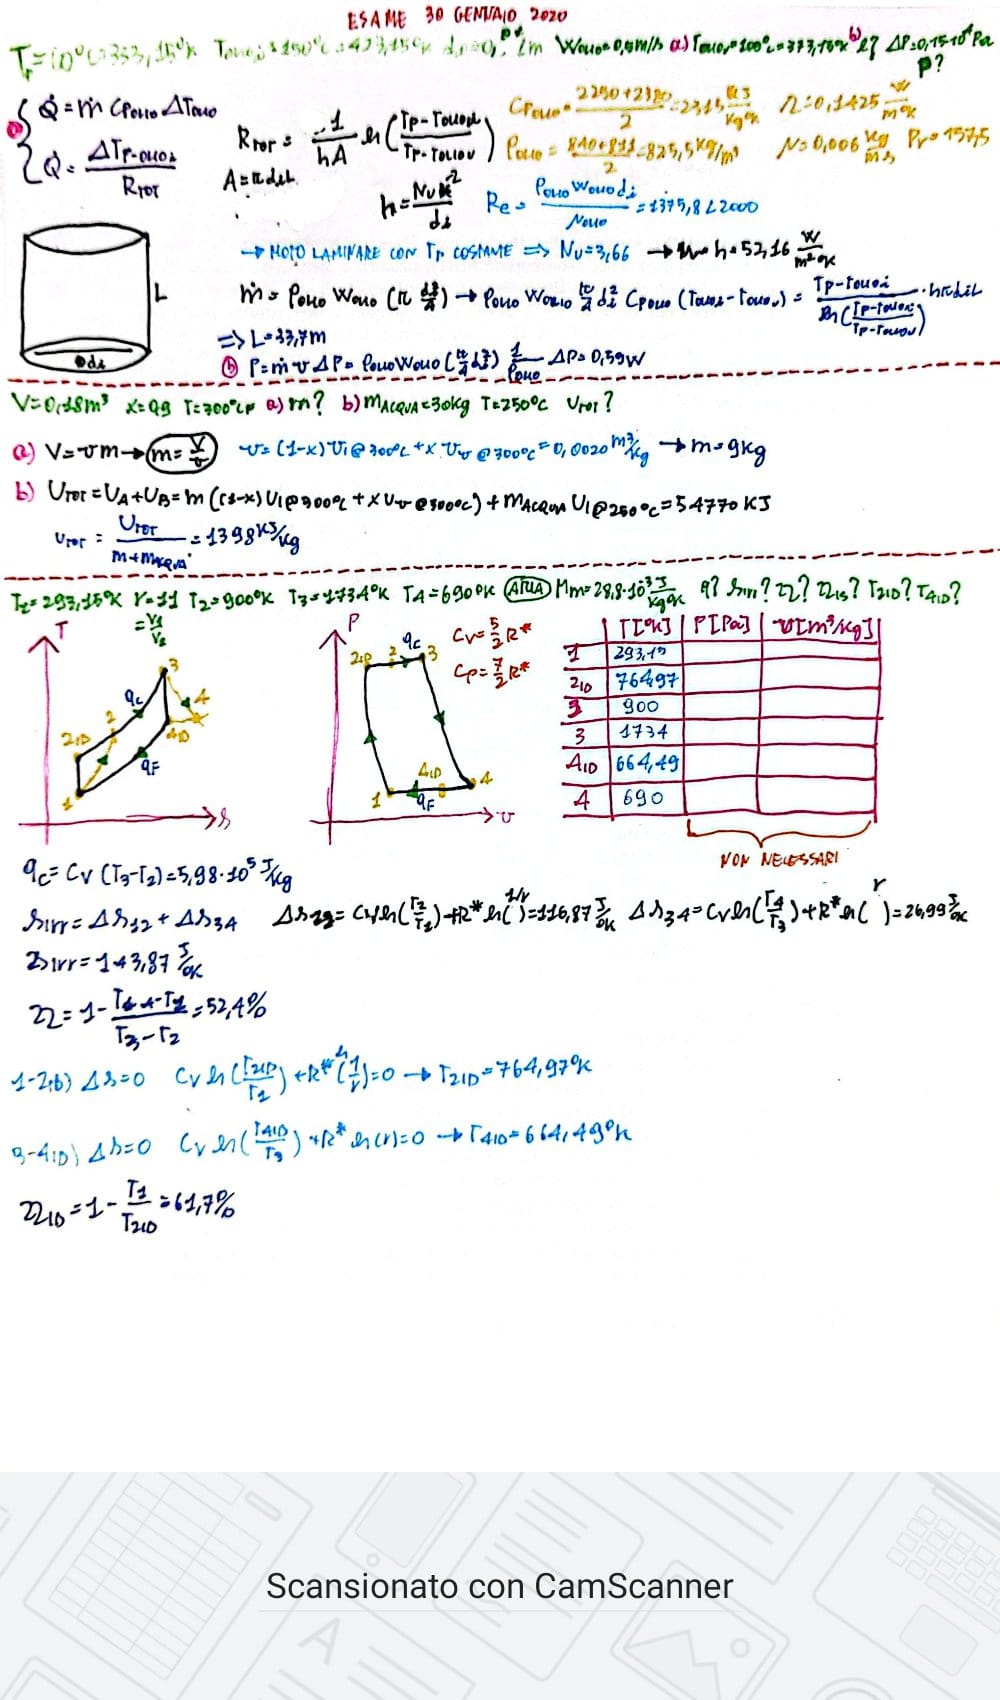 ESAME 30 GENNAIO 2020
W olio = 0,5 m/s a) T olio,u = 100°C = 373,15°K b) L? ΔP = 0,15·10⁶ Pa
P?
a) Q̇ = ṁ Cp olio ΔT olio
Q̇ = ΔTp-olio / R TOT
R TOT = -1/hA ln(Tp-Tolio,u / Tp-Tolio,i)
A = π di L
Cp olio = 2250+2380 / 2 = 2315 KJ/Kg°K
λ = 0,1425 W/m°K
ρ olio = 840+811 / 2 = 825,5 Kg/m³
μ = 0,006 Kg/ms Pr = 1575
h = Nu λ / di
Re = ρ olio W olio di / μ olio = 1375,8 < 2000
→ MOTO LAMINARE CON Tp COSTANTE ⇒ Nu = 3,66 → h = 52,16 W/m²°K
ṁ = ρ olio W olio (π di²/4) → ρ olio W olio π/4 di² Cp olio (T olio,i - T olio,u) = Tp-Tolio,i / ln(Tp-Tolio,i / Tp-Tolio,u) · hπdiL
⇒ L = 33,7m
L
di
b) P = ṁ v ΔP = ρ olio W olio (π/4 di²) 1/ρ olio ΔP = 0,59W
V = 0,18m³ X = 0,9 T = 300°C a) m? b) m ACQUA = 30kg T = 250°C U TOT?
a) V = vm → m = V/v v = (1-x) Vl@300°C + x Vv@300°C = 0,0020 m³/kg → m = 9kg
b) U TOT = UA + UB = m ((1-x) Ul@300°C + x Uv@300°C) + m ACQUA Ul@250°C = 54770 KJ
u TOT = U TOT / m + m ACQUA = 1398 KJ/kg
T1 = 293,15°K r = 11 T2 = 900°K T3 = 1734°K T4 = 690°K ARIA Mm = 28,8·10³ J/kg°K q? Sirr? η? T2ID? T4ID?
= V1/V2
T
3
2
qc
4
2ID
4ID
qF
1
s
P
2ID 2 qc 3
4ID
1 qF 4
v
Cv = 5/2 R*
Cp = 7/2 R*
T[°K] P[Pa] v[m³/kg]
1 293,15
2ID 764,97
900
3 1734
4ID 664,49
4 690
NON NECESSARI
qc = Cv (T3-T2) = 5,98·10⁵ J/kg
Sirr = ΔS12 + ΔS34 ΔS12 = Cv ln(T2/T1) + R* ln(1/r) = 116,87 J/°K ΔS34 = Cv ln(T4/T3) + R* ln(r) = 26,99 J/°K
Sirr = 143,87 J/°K
η = 1 - T4-T1 / T3-T2 = 52,4%
1-2ID) ΔS=0 Cv ln(T2ID/T1) + R* ln(1/r) = 0 → T2ID = 764,97°K
3-4ID) ΔS=0 Cv ln(T4ID/T3) + R* ln(r) = 0 → T4ID = 664,49°K
ηID = 1 - T1/T2ID = 61,7%
Scansionato con CamScanner